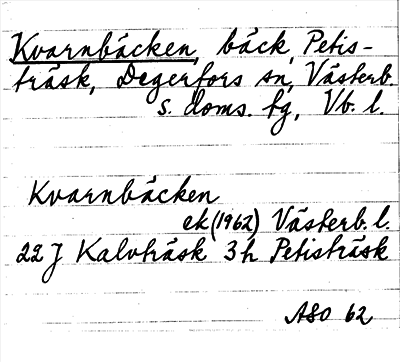 Kvarnbäcken, bäck, Petis-
träsk, Degerfors sn, Västerb.
s. doms. tg, Vb. l.
Kvarnbäcken
ek (1962) Västerb. l.
22 J Kalvträsk 3 h Petisträsk
ASO 62